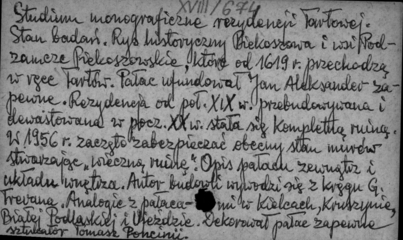 XVIII/674
Studium monograficzne rezydencji Tarłowej.
Stan badań. Rys historyczny Piekoszowa i wsi Pod-
zamcze Piekoszowskie, które od 1619 r. przechodzą
w ręce Tarłów. Pałac ufundował Jan Aleksander za-
pewne. Rezydencja od poł. XIX w. przebudowywana i
dewastowana w pocz. XX w. stała się kompletną ruiną.
W 1956 r. zaczęto zabezpieczać obecny stan murów
stwarzając „wieczną ruinę". Opis pałacu zewnątrz i
układu wnętrza. Autor budowli wywodzi się z kręgu G.
Trevana. Analogie z pałaca-mi w Kielcach, Kruszynie,
Białej Podlaskiej i Ujeździe. Dekorował pałac zapewne
sztukator Tomasz Poncinii.